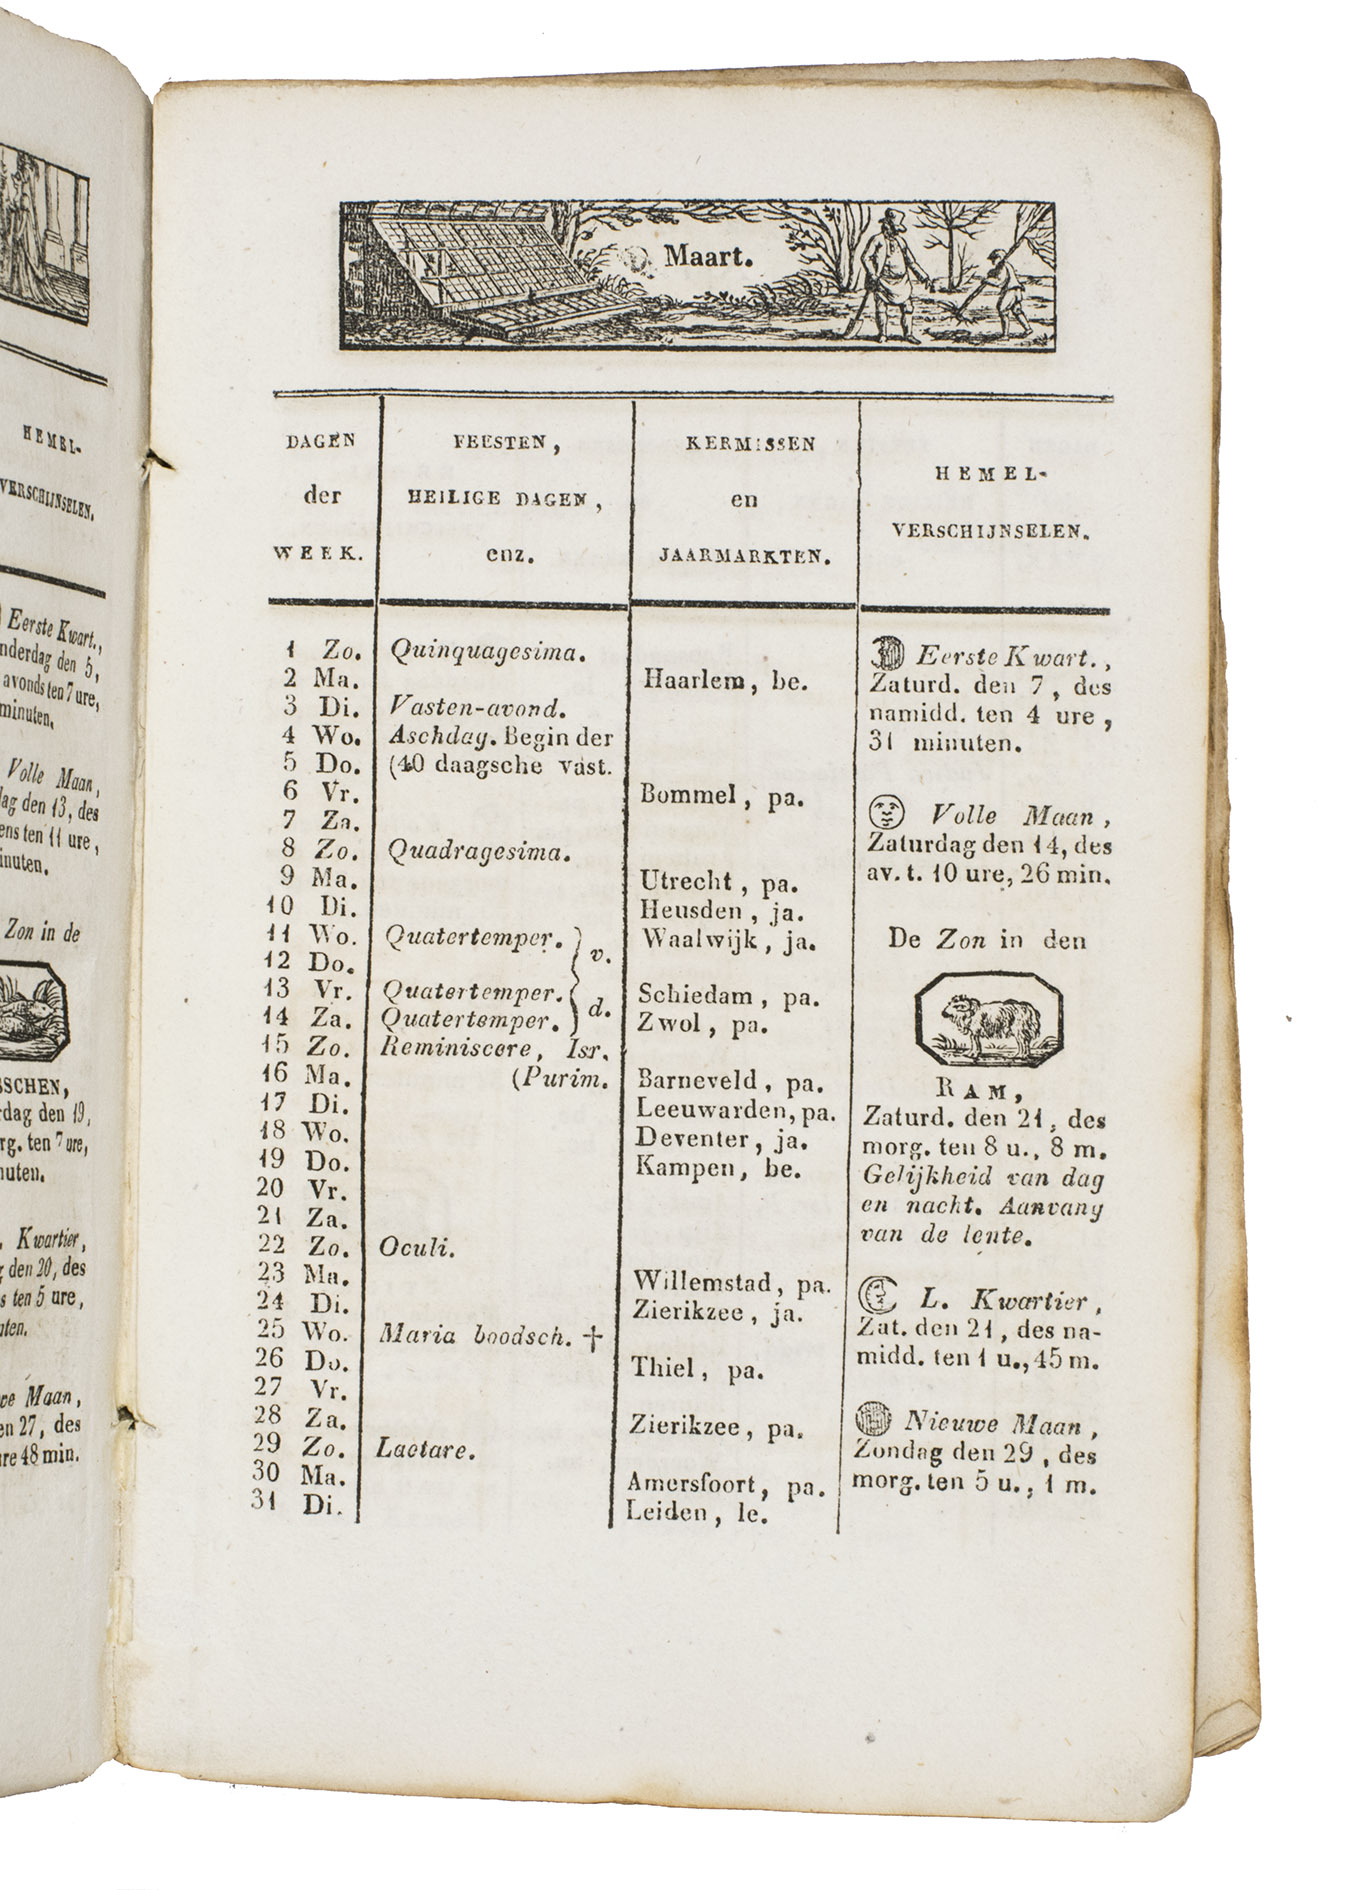 HEMEL-
VERSCHIJNSELEN.
Eerste Kwart.,
nderdag den 5,
avonds ten 7 ure,
minuten.
Volle Maan,
dag den 13, des
ens ten 11 ure,
inuten.
Zon in de
SSCHEN,
rdag den 19,
rg. ten 7 ure,
nuten.
Kwartier,
g den 20, des
s ten 5 ure,
uten.
we Maan,
en 27, des
ure 48 min.
Maart.
DAGEN
der
WEEK.
FEESTEN,
HEILIGE DAGEN,
enz.
KERMISSEN
en
JAARMARKTEN.
HEMEL-
VERSCHIJNSELEN.
1 Zo. Quinquagesima.
2 Ma. Haarlem, be.
3 Di. Vasten-avond.
4 Wo. Aschdag. Begin der
5 Do. (40 daagsche vast.
6 Vr. Bommel, pa.
7 Za.
8 Zo. Quadragesima.
9 Ma. Utrecht, pa.
10 Di. Heusden, ja.
11 Wo. Quatertemper. v. Waalwijk, ja.
12 Do.
13 Vr. Quatertemper. d. Schiedam, pa.
14 Za. Quatertemper. Zwol, pa.
15 Zo. Reminiscere, Isr.
16 Ma. (Purim. Barneveld, pa.
17 Di. Leeuwarden, pa.
18 Wo. Deventer, ja.
19 Do. Kampen, be.
20 Vr.
21 Za.
22 Zo. Oculi.
23 Ma. Willemstad, pa.
24 Di. Zierikzee, ja.
25 Wo. Maria boodsch. †
26 Do. Thiel, pa.
27 Vr.
28 Za. Zierikzee, pa.
29 Zo. Laetare.
30 Ma. Amersfoort, pa.
31 Di. Leiden, le.
Eerste Kwart.,
Zaturd. den 7, des
namidd. ten 4 ure,
31 minuten.
Volle Maan,
Zaturdag den 14, des
av. t. 10 ure, 26 min.
De Zon in den
RAM,
Zaturd. den 21, des
morg. ten 8 u., 8 m.
Gelijkheid van dag
en nacht. Aanvang
van de lente.
L. Kwartier,
Zat. den 21, des na-
midd. ten 1 u., 45 m.
Nieuwe Maan,
Zondag den 29, des
morg. ten 5 u., 1 m.